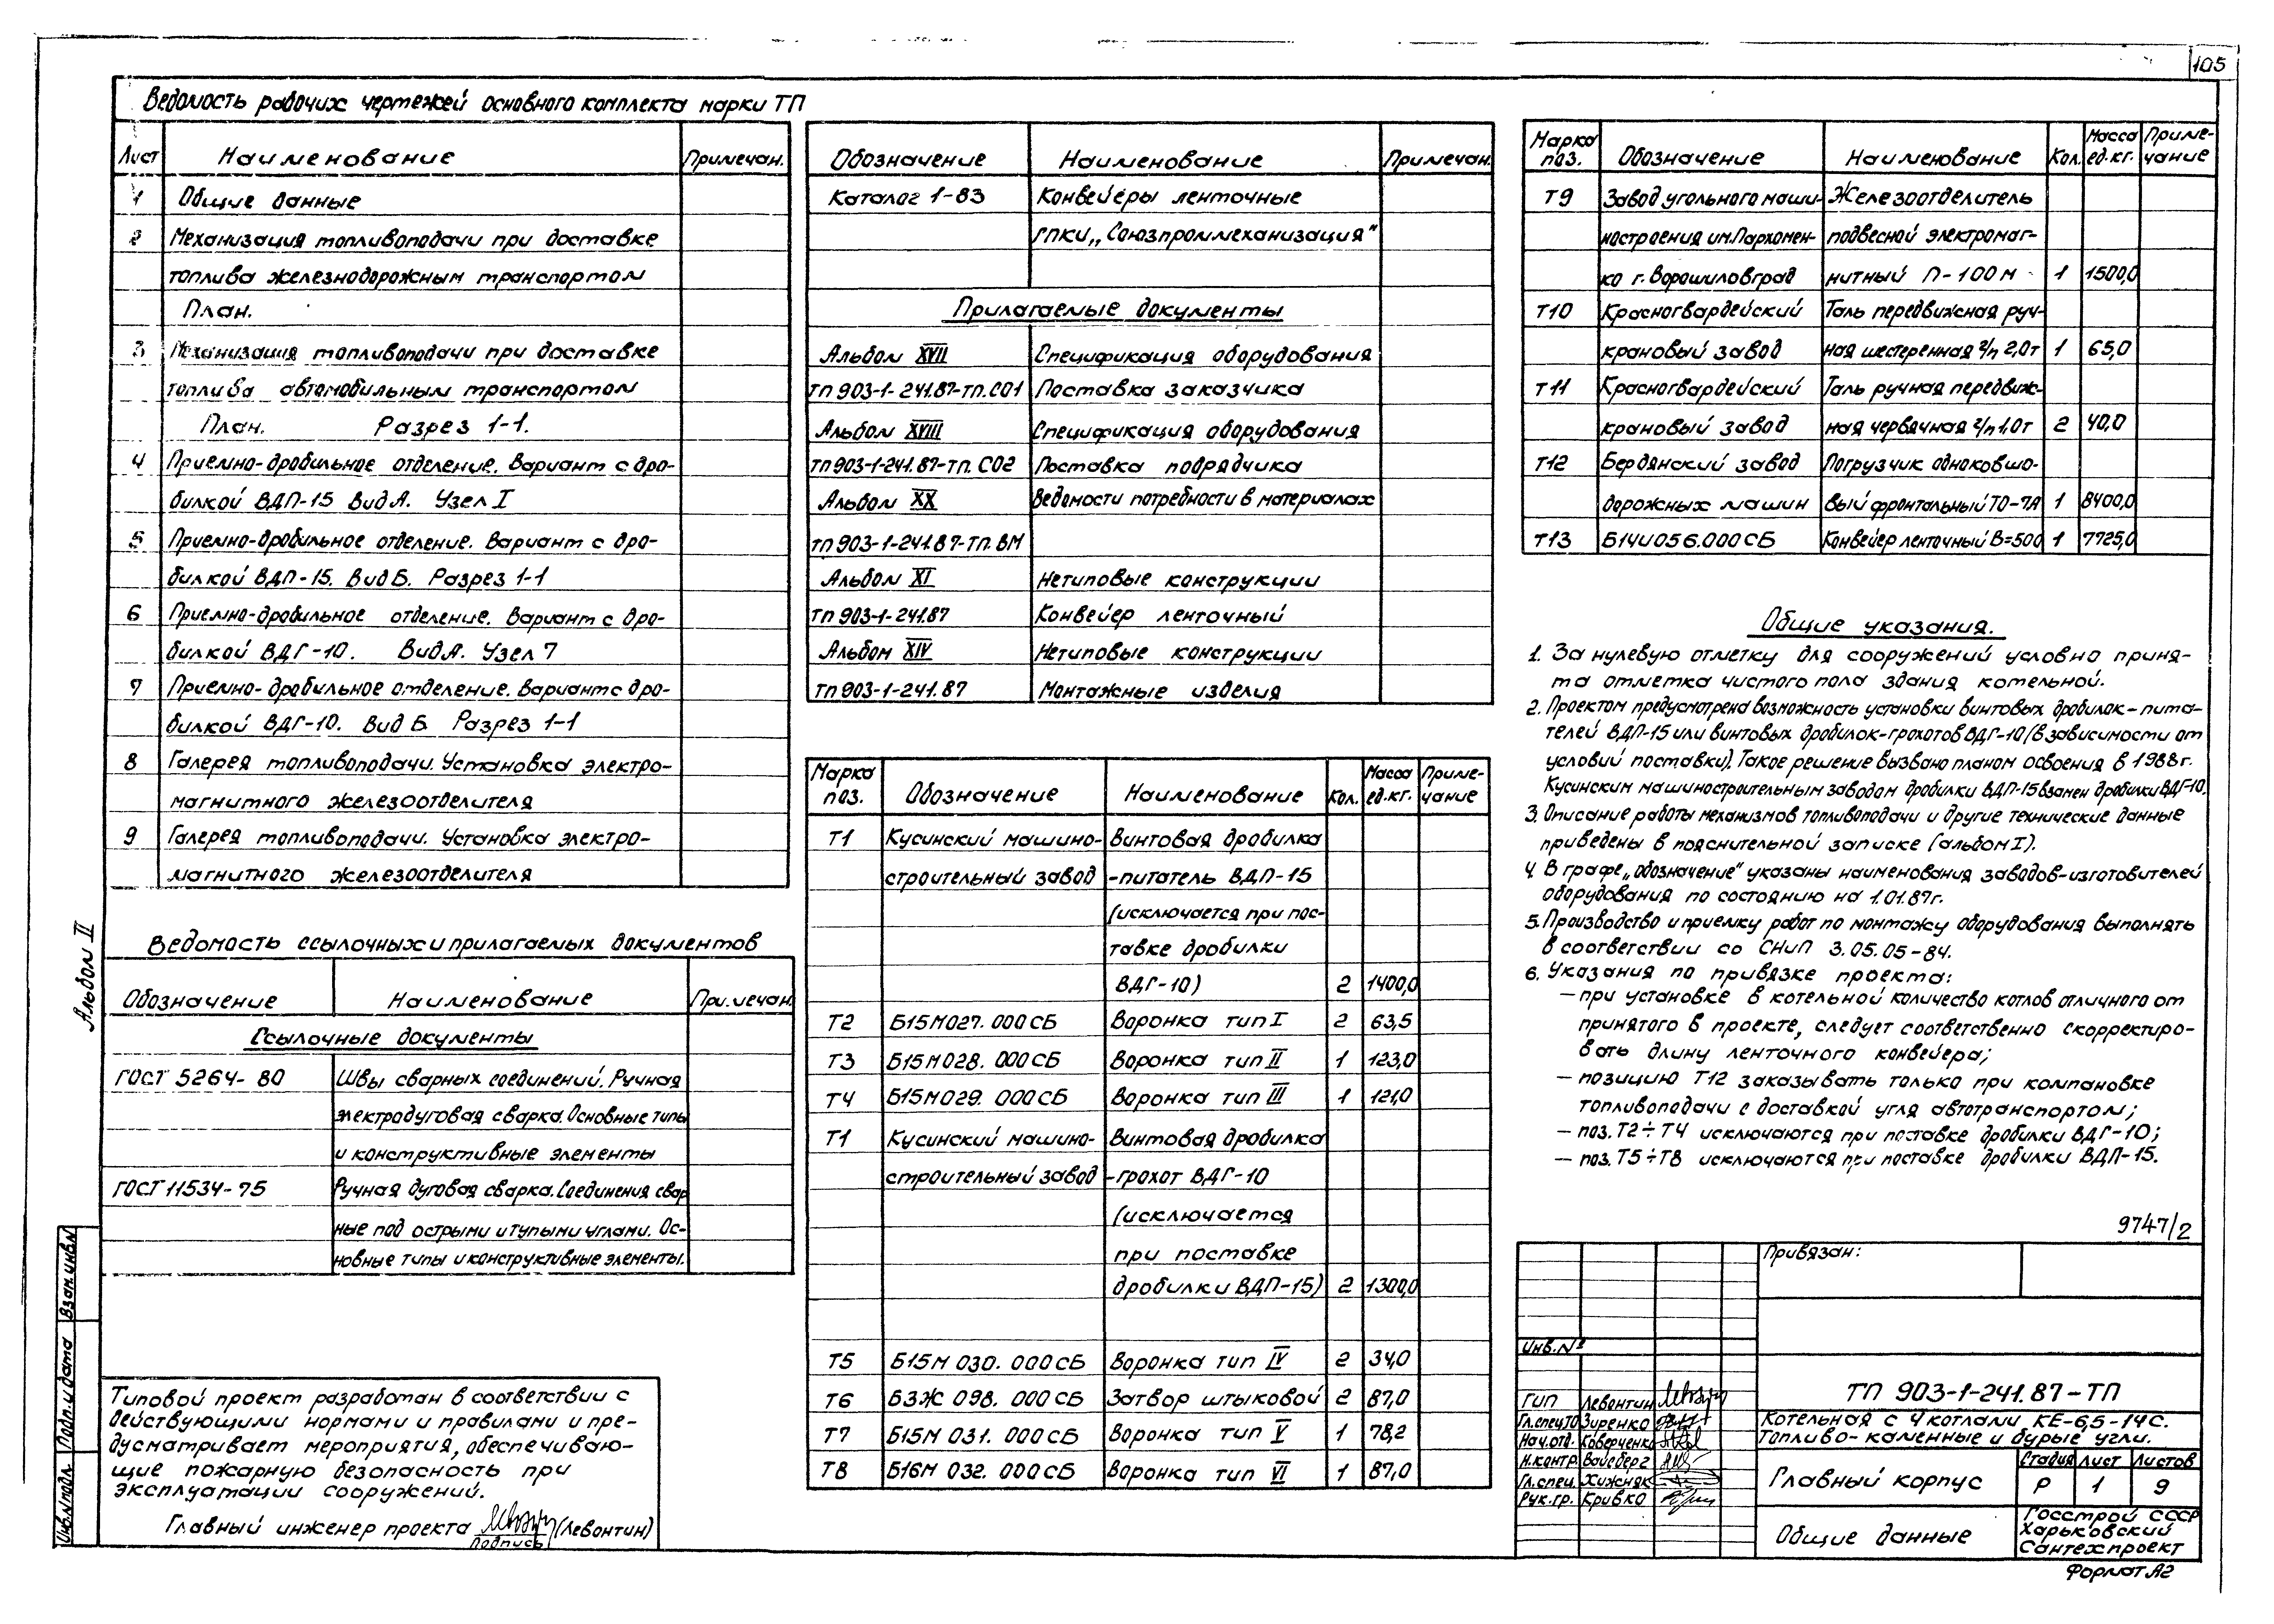 105
Ведомость рабочих чертежей основного комплекта марки ТП
Лист Наименование Примечан.
1 Общие данные
2 Механизация топливоподачи при доставке
топлива железнодорожным транспортом
План.
3 Механизация топливоподачи при доставке
топлива автомобильным транспортом
План. Разрез 1-1.
4 Приемно-дробильное отделение. Вариант с дро-
билкой ВДП-15 Вид А. Узел I
5 Приемно-дробильное отделение. Вариант с дро-
билкой ВДП-15. Вид Б. Разрез 1-1
6 Приемно-дробильное отделение. Вариант с дро-
билкой ВДГ-10. Вид А. Узел 7
7 Приемно-дробильное отделение. Вариант с дро-
билкой ВДГ-10. Вид Б Разрез 1-1
8 Галерея топливоподачи. Установка электро-
магнитного железоотделителя
9 Галерея топливоподачи. Установка электро-
магнитного железоотделителя
Альбом II
Ведомость ссылочных и прилагаемых документов
Обозначение Наименование Примечан.
Ссылочные документы
ГОСТ 5264-80 Швы сварных соединений. Ручная
электродуговая сварка. Основные типы
и конструктивные элементы
ГОСТ 11534-75 Ручная дуговая сварка. Соединения свар
ные под острыми и тупыми углами. Ос-
новные типы и конструктивные элементы.
Типовой проект разработан в соответствии с
действующими нормами и правилами и пре-
дусматривает мероприятия, обеспечиваю-
щие пожарную безопасность при
эксплуатации сооружений.
Главный инженер проекта (Левонтин)
Подпись
Инв.№ подл. Подп. и дата Взам.инв.№
Обозначение Наименование Примечан.
Каталог 1-83 Конвейеры ленточные
ГПКИ „Союзпроммеханизация"
Прилагаемые документы
Альбом XVII Спецификация оборудования
ТП 903-1-241.87-ТП.СО1 Поставка заказчика
Альбом XVIII Спецификация оборудования
ТП 903-1-241.87-ТП.СО2 Поставка подрядчика
Альбом XX Ведомости потребности в материалах
ТП 903-1-241.87-ТП.ВМ
Альбом XI Нетиповые конструкции
ТП 903-1-241.87 Конвейер ленточный
Альбом XIV Нетиповые конструкции
ТП 903-1-241.87 Монтажные изделия
Марка поз. Обозначение Наименование Кол. Масса ед.кг. Приме-чание
Т1 Кусинский машино- Винтовая дробилка
строительный завод -питатель ВДП-15
(исключается при пос-
тавке дробилки
ВДГ-10) 2 1400,0
Т2 Б15М027.000СБ Воронка тип I 2 63,5
Т3 Б15М028.000СБ Воронка тип II 1 123,0
Т4 Б15М029.000СБ Воронка тип III 1 121,0
Т1 Кусинский машино- Винтовая дробилка
строительный завод -грохот ВДГ-10
(исключается
при поставке
дробилки ВДП-15) 2 1300,0
Т5 Б15М 030.000СБ Воронка тип IV 2 34,0
Т6 Б3Ж 098.000СБ Затвор штыковой 2 87,0
Т7 Б15М 031.000СБ Воронка тип V 1 78,2
Т8 Б16М 032.000СБ Воронка тип VI 1 87,0
Марка поз. Обозначение Наименование Кол. Масса ед.кг. Приме-чание
Т9 Завод угольного маши- Железоотделитель
ностроения им.Пархомен- подвесной электромаг-
ко г. Ворошиловград нитный П-100М 1 1500,0
Т10 Красногвардейский Таль передвижная руч-
крановый завод ная шестеренная г/п 2,0т 1 65,0
Т11 Красногвардейский Таль ручная передвиж-
крановый завод ная червячная г/п 1,0т 2 40,0
Т12 Бердянский завод Погрузчик одноковшо-
дорожных машин вый фронтальный ТО-7А 1 8400,0
Т13 Б14И056.000СБ Конвейер ленточный В=500 1 7725,0
Общие указания.
1. За нулевую отметку для сооружений условно приня-
та отметка чистого пола здания котельной.
2. Проектом предусмотрена возможность установки винтовых дробилок-пита-
телей ВДП-15 или винтовых дробилок-грохотов ВДГ-10 (в зависимости от
условий поставки). Такое решение вызвано планом освоения в 1988г.
Кусинским машиностроительным заводом дробилки ВДП-15 взамен дробилки ВДГ-10.
3. Описание работы механизмов топливоподачи и другие технические данные
приведены в пояснительной записке (альбом I).
4. В графе „обозначение" указаны наименования заводов-изготовителей
оборудования по состоянию на 1.01.87г.
5. Производство и приемку работ по монтажу оборудования выполнять
в соответствии со СНиП 3.05.05-84.
6. Указания по привязке проекта:
— при установке в котельной количество котлов отличного от
принятого в проекте, следует соответственно скорректиро-
вать длину ленточного конвейера;
— позицию Т12 заказывать только при компановке
топливоподачи с доставкой угля автотранспортом;
— поз. Т2÷Т4 исключаются при поставке дробилки ВДГ-10;
— поз. Т5÷Т8 исключаются при поставке дробилки ВДП-15.
9747/2
Привязан:
Инв.№
ГИП Левонтин
Гл.спец.ТО Зиренко
Нач.отд. Коверченко
Н.контр. Вайсберг
Гл.спец. Хижняк
Рук.гр. Кривко
ТП 903-1-241.87-ТП
Котельная с 4 котлами КЕ-6,5-14С.
Топливо-каменные и бурые угли.
Главный корпус
Стадия Лист Листов
Р 1 9
Общие данные
Госстрой СССР
Харьковский
Сантехпроект
Формат А2